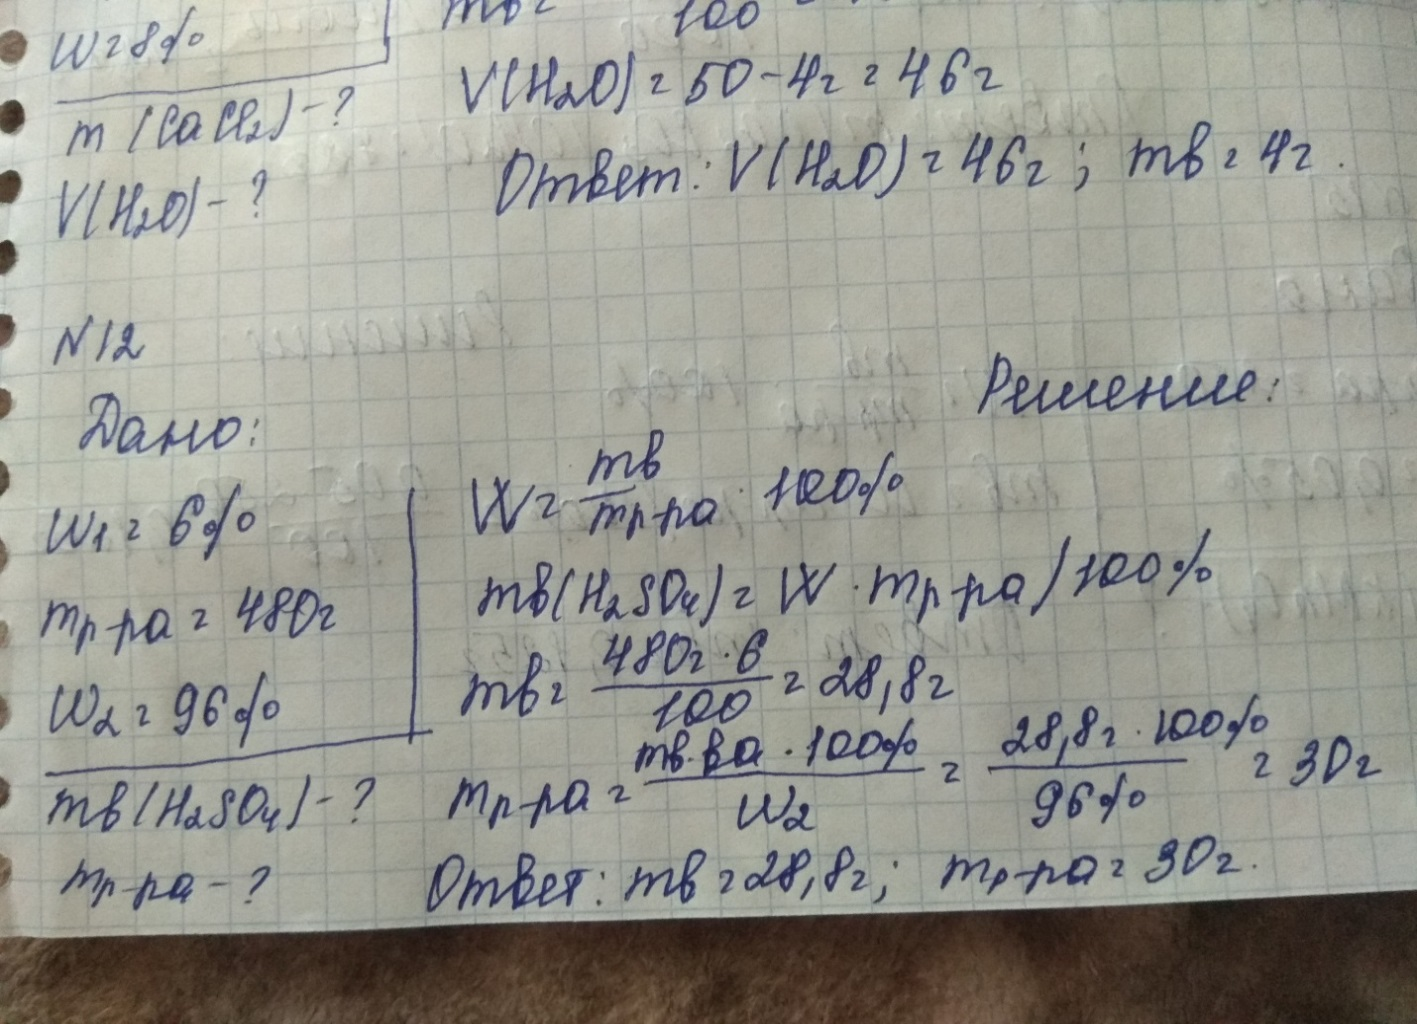 W=8%
mв=
100
m(CaCl₂)-?
V(H₂O)=50-4г=46г
V(H₂O)-?
Ответ: V(H₂O)=46г; mв=4г.
N12
Дано:
Решение:
W₁=6%
mр-ра=480г
W₂=96%
mв(H₂SO₄)-?
mр-ра-?
W= mв / mр-ра · 100%
mв(H₂SO₄)=W·mр-ра/100%
mв= 480г·6 / 100 =28,8г
mр-ра= mв-ва·100% / W₂ = 28,8г·100% / 96% =30г
Ответ: mв=28,8г; mр-ра=30г.